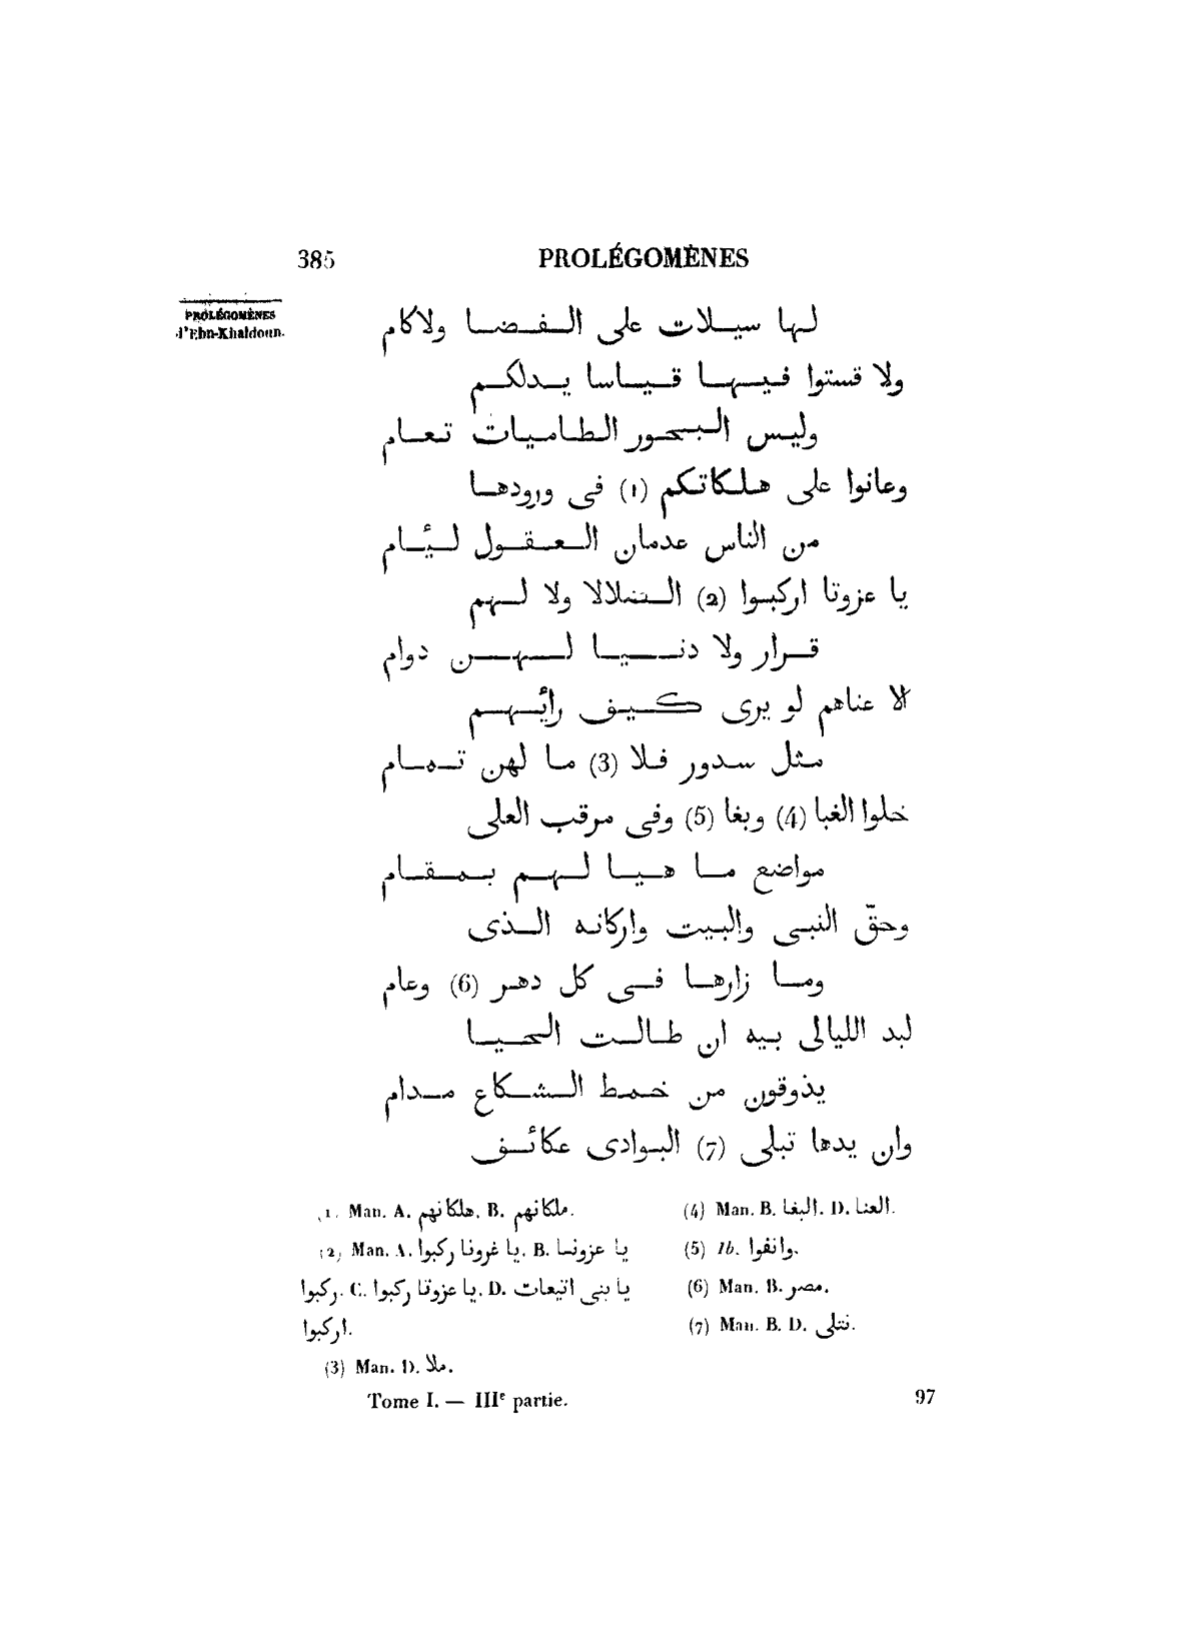 385 PROLÉGOMÈNES
PROLÉGOMÈNES
d'Ebn-Khaldoun.
لها سيلات على الفضا ولاكام
ولا قستوا فيها قياسا يدلكم
وليس البحور الطاميات تعام
وعانوا على هلكاتكم (1) فى ورودها
من الناس عدمان العقول لئام
يا عزوتا اركبوا (2) الضلالا ولا لهم
قرار ولا دنيا لهن دوام
الا عناهم لو يرى كيف رائهم
مثل سدور فلا (3) ما لهن تمام
خلوا الغبا (4) وبغا (5) وفى مرقب العلى
مواضع ما هيا لهم بمقام
وحقّ النبى والبيت واركانه الذى
وما زارها فى كل دهر (6) وعام
لبد الليالى بيه ان طالت الحيا
يذوقون من خمط الشكاع مدام
وان يدها تبلى (7) البوادى عكائف
(1) Man. A. هلكانهم. B. ملكانهم.
(2) Man. A. يا غرونا ركبوا. B. يا عزونما
ركبوا. C. يا عزوتا ركبوا. D. يا بنى اتيعات
اركبوا.
(3) Man. D. ملا.
(4) Man. B. البغا. D. العنا.
(5) Ib. وانفوا.
(6) Man. B. مصر.
(7) Man. B. D. نتلى.
Tome I. — IIIe partie. 97